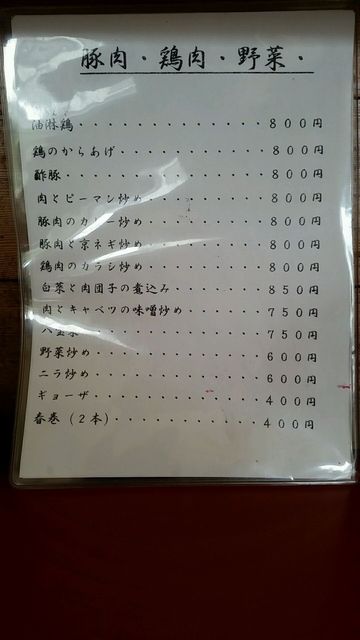 豚肉・鶏肉・野菜・
油淋鶏・・・・・・・・・・・・・・８００円
鶏のからあげ・・・・・・・・・・・８００円
酢豚・・・・・・・・・・・・・・・８００円
肉とピーマン炒め・・・・・・・・・８００円
豚肉のカレー炒め・・・・・・・・・８００円
豚肉と京ネギ炒め・・・・・・・・・８００円
鶏肉のカラシ炒め・・・・・・・・・８００円
白菜と肉団子の煮込み・・・・・・・８５０円
肉とキャベツの味噌炒め・・・・・・７５０円
八宝菜・・・・・・・・・・・・・・７５０円
野菜炒め・・・・・・・・・・・・・６００円
ニラ炒め・・・・・・・・・・・・・６００円
ギョーザ・・・・・・・・・・・・・４００円
春巻（２本）・・・・・・・・・・・４００円